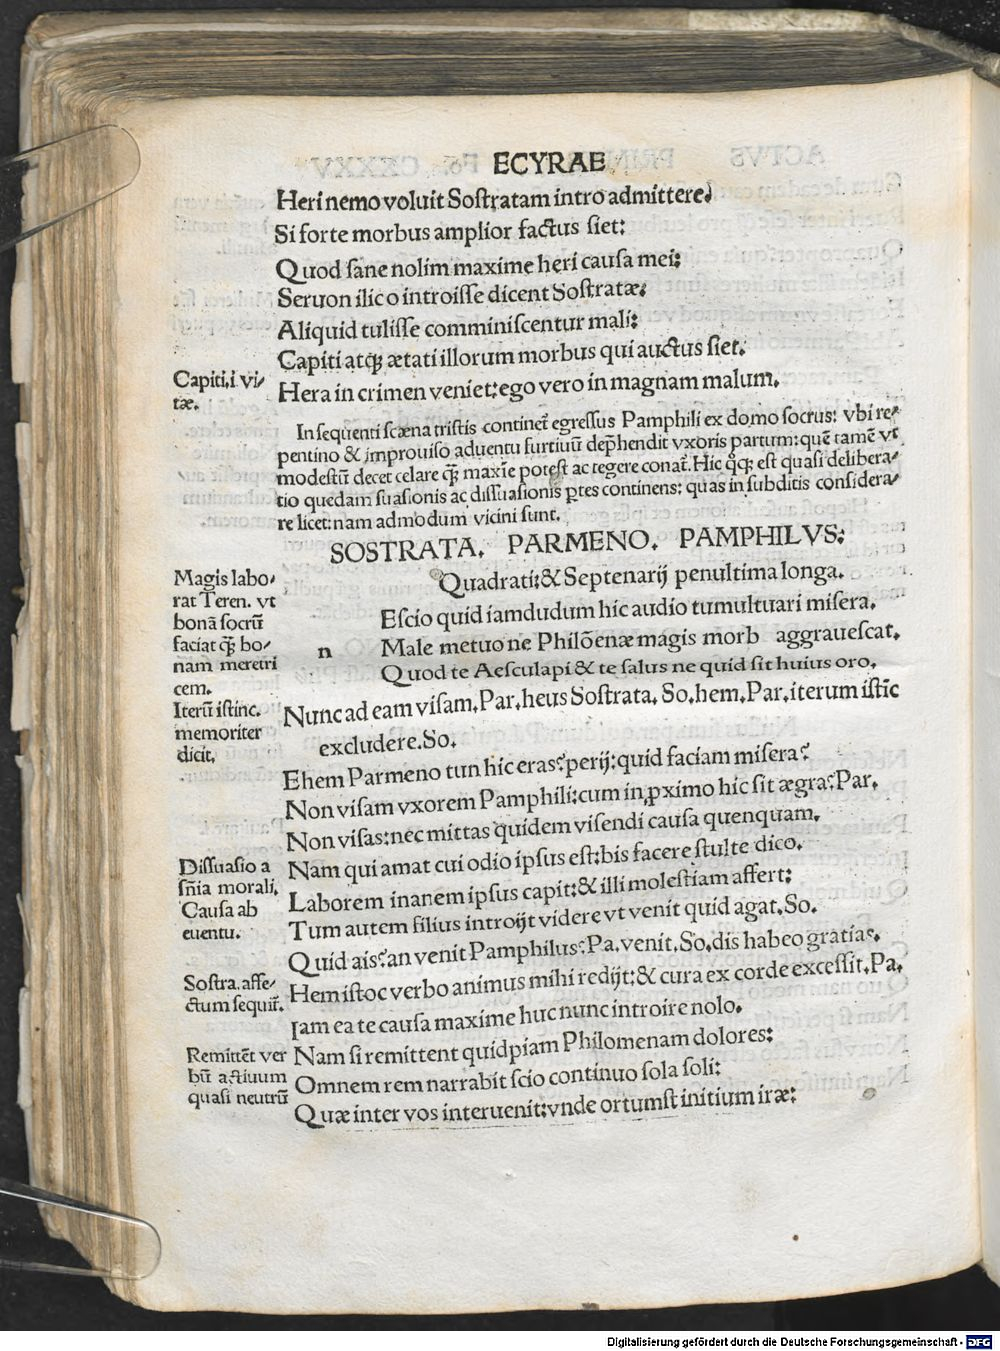 ECYRAE
Heri nemo voluit Sostratam intro admittere.
Si forte morbus amplior factus siet:
Quod sane nolim maxime heri causa mei:
Seruon ilico introisse dicent Sostratæ:
Aliquid tulisse comminiscentur mali:
Capiti atqꝫ ætati illorum morbus qui auctus siet.
Capiti.i vi/
tæ.
Hera in crimen veniet:ego vero in magnam malum.
In sequenti scæna tristis continet̃ egressus Pamphili ex domo socrus: vbi re/
pentino & improuiso aduentu furtiuũ dep̃hendit vxoris partum:quẽ tamẽ vt
modestũ decet celare qꝫ maxĩe potest ac tegere conat̃. Hic qͦꝫ est quasi delibera/
tio quedam suasionis ac dissuasionis ꝑtes continens: quas in subditis considera/
re licet:nam admodum vicini sunt.
SOSTRATA. PARMENO. PAMPHILVS:
Quadrati:& Septenarij penultima longa.
Magis labo/
rat Teren. vt
bonã socrũ
faciat qꝫ bo/
nam meretri
cem.
n
Escio quid iamdudum hic audio tumultuari misera.
Male metuo ne Philõenæ magis morb aggrauescat.
Quod te Aesculapi & te salus ne quid sit huius oro.
Nunc ad eam visam.Par.heus Sostrata. So.hem.Par.iterum istĩc
excludere.So.
Iterũ istinc.
memoriter
dicit.
Ehem Parmeno tun hic eras?perij:quid faciam misera?
Non visam vxorem Pamphili:cum in ꝓximo hic sit ægra?Par.
Non visas:nec mittas quidem visendi causa quenquam.
Nam qui amat cui odio ipsus est:bis facere stulte dico.
Laborem inanem ipsus capit:& illi molestiam affert:
Tum autem filius introijt videre vt venit quid agat.So.
Dissuasio a
sñia morali.
Causa ab
euentu.
Quid ais?an venit Pamphilus?Pa.venit.So.dis habeo gratias.
Hem istoc verbo animus mihi redijt:& cura ex corde excessit.Pa.
Sostra.affe/
ctum sequit̃.
Iam ea te causa maxime huc nunc introire nolo.
Nam si remittent quidpiam Philomenam dolores:
Omnem rem narrabit scio continuo sola soli:
Quæ inter vos interuenit:vnde ortumst initium iræ:
Remittẽt ver
bũ actiuum
quasi neutrũ
Digitalisierung gefördert durch die Deutsche Forschungsgemeinschaft - DFG